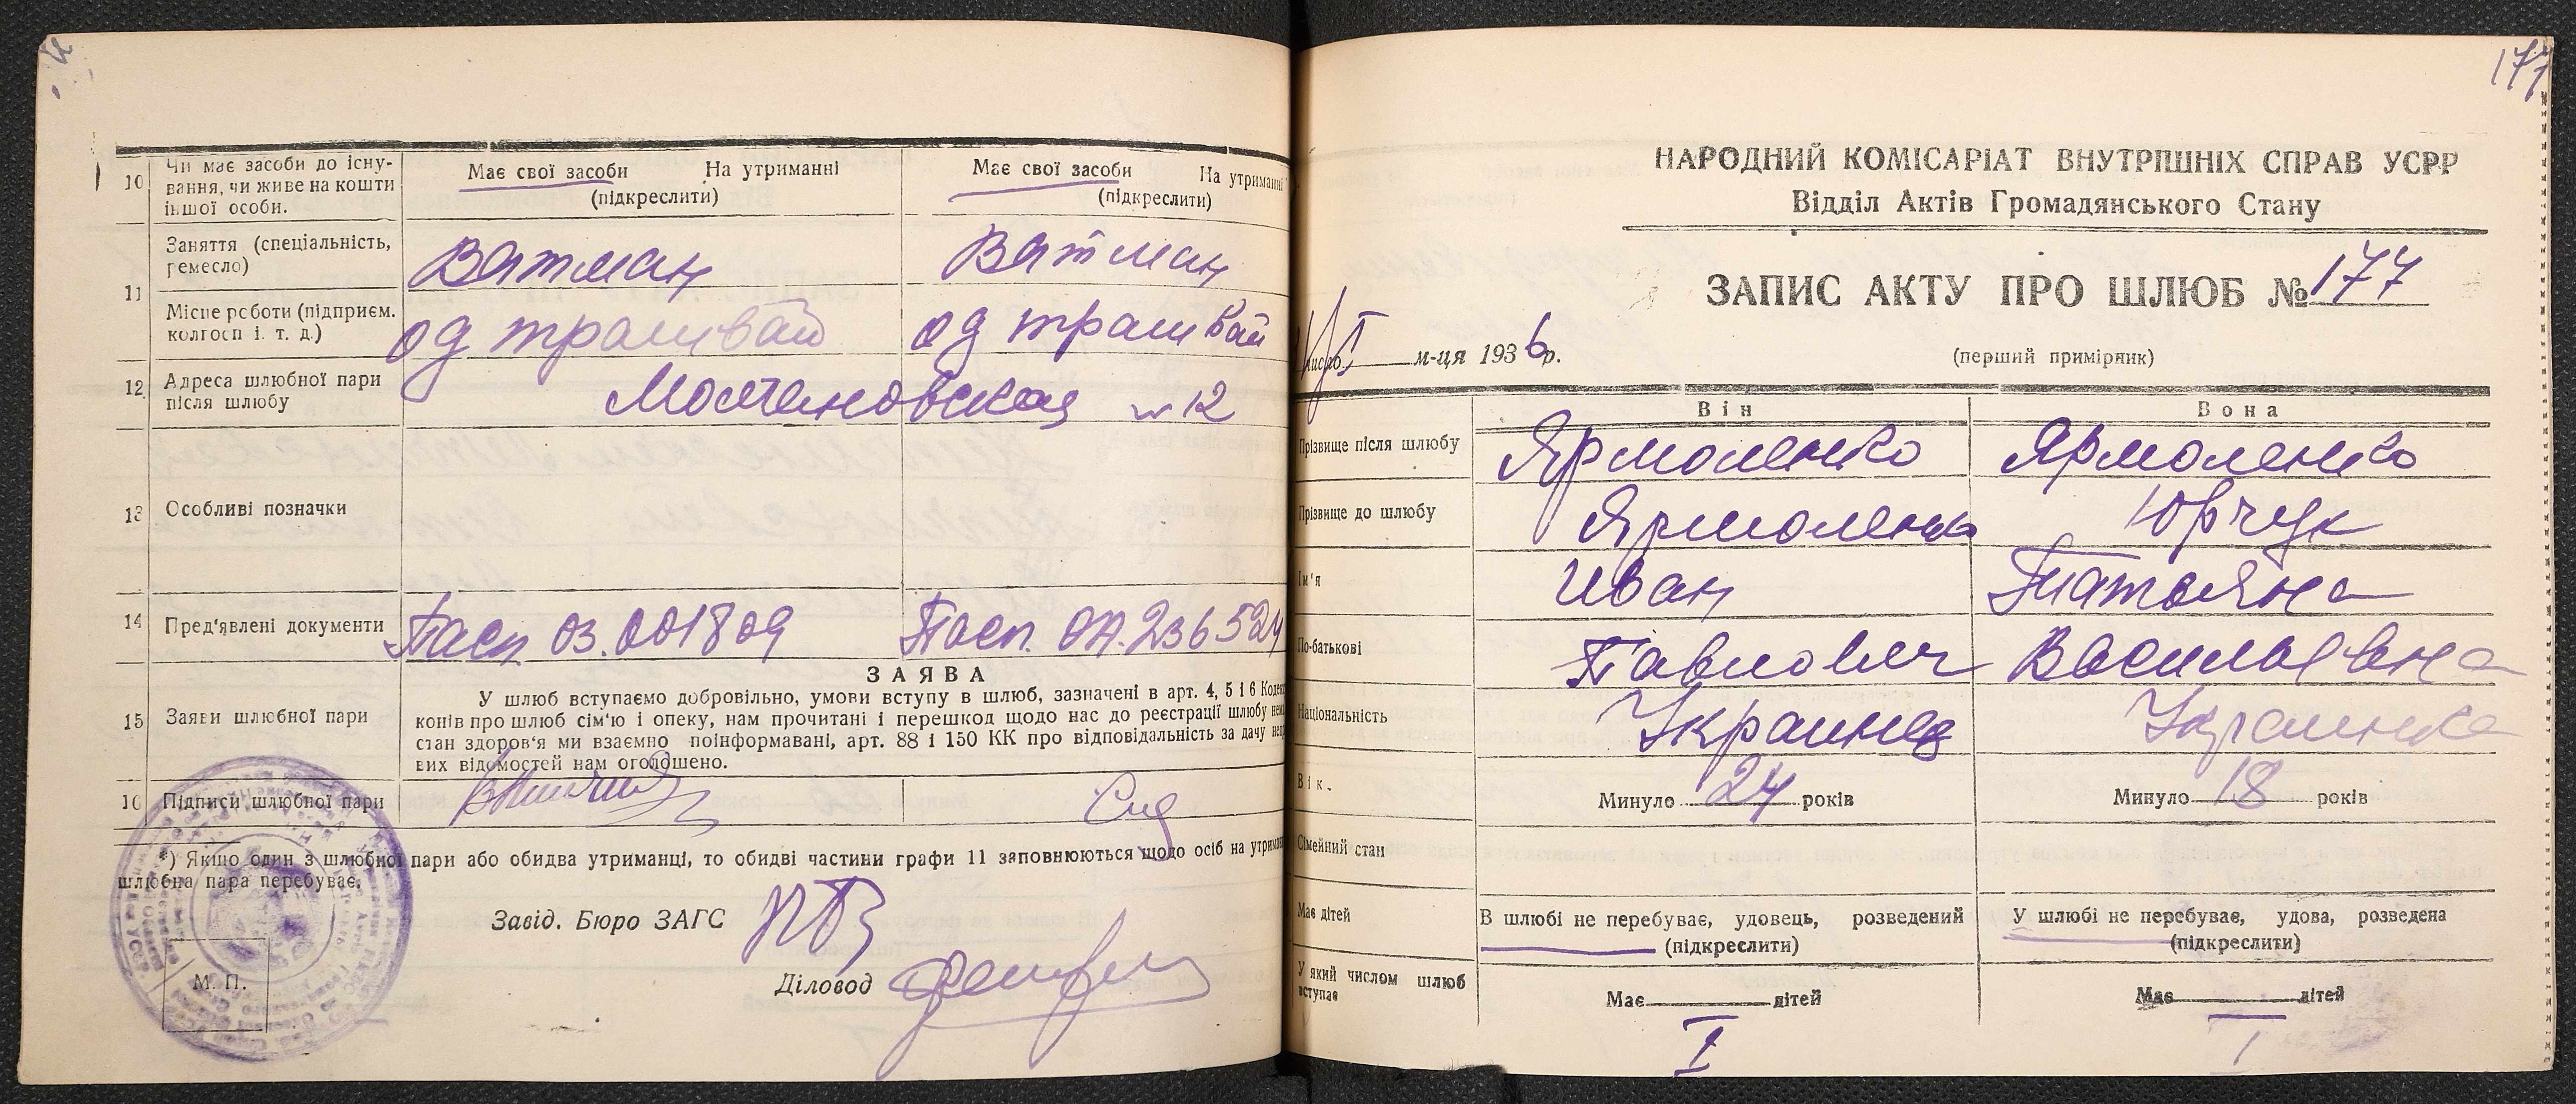 10 Чи має засоби до існу-
вання, чи живе на кошти
іншої особи.
Має свої засоби На утриманні
(підкреслити)
Має свої засоби На утриманні
(підкреслити)
11 Заняття (спеціальність,
гемесло)
Ватман
Ватман
Місце роботи (підприєм.
колгосп і. т. д.)
од трамвай
од трамвай
12 Адреса шлюбної пари
після шлюбу
Молчановская № 12
13 Особливі позначки
14 Пред'явлені документи
Пасп. 03.001809
Пасп. ОА.236524
15 Заяви шлюбної пари
ЗАЯВА
У шлюб вступаємо добровільно, умови вступу в шлюб, зазначені в арт. 4, 5 і 6 Кодек
конів про шлюб сім'ю і опеку, нам прочитані і перешкод щодо нас до реєстрації шлюбу нема
стан здоров'я ми взаємно поінформавані, арт. 88 і 150 КК про відповідальність за дачу непр
вих відомостей нам оголошено.
16 Підписи шлюбної пари
*) Якщо один з шлюбної пари або обидва утриманці, то обидві частини графи 11 заповнюються щодо осіб на утриманні
шлюбна пара перебуває.
Завід. Бюро ЗАГС
Діловод
М. П.
177
НАРОДНИЙ КОМІСАРІАТ ВНУТРІШНІХ СПРАВ УСРР
Відділ Актів Громадянського Стану
ЗАПИС АКТУ ПРО ШЛЮБ № 177
число м-ця 1936 р.
(перший примірник)
Він
Вона
Прізвище після шлюбу
Ярмоленко
Ярмоленко
Прізвище до шлюбу
Ярмоленко
Юрчук
Ім'я
Иван
Татьяна
По-батькові
Павлович
Васильевна
Національність
Украинец
Украинка
Вік.
Минуло 24 років
Минуло 18 років
Сімейний стан
Має дітей
В шлюбі не перебуває, удовець, розведений
(підкреслити)
У шлюбі не перебуває, удова, розведена
(підкреслити)
У який числом шлюб
вступає
Має дітей
Має дітей
I
I